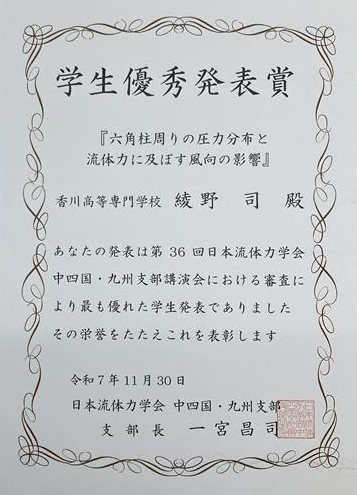 学生優秀発表賞
『六角柱周りの圧力分布と
流体力に及ぼす風向の影響』
香川高等専門学校 綾野 司 殿
あなたの発表は第36回日本流体力学会
中四国・九州支部講演会における審査に
より最も優れた学生発表でありました
その栄誉をたたえこれを表彰します
令和7年11月30日
日本流体力学会 中四国・九州支部
支部長 一宮昌司